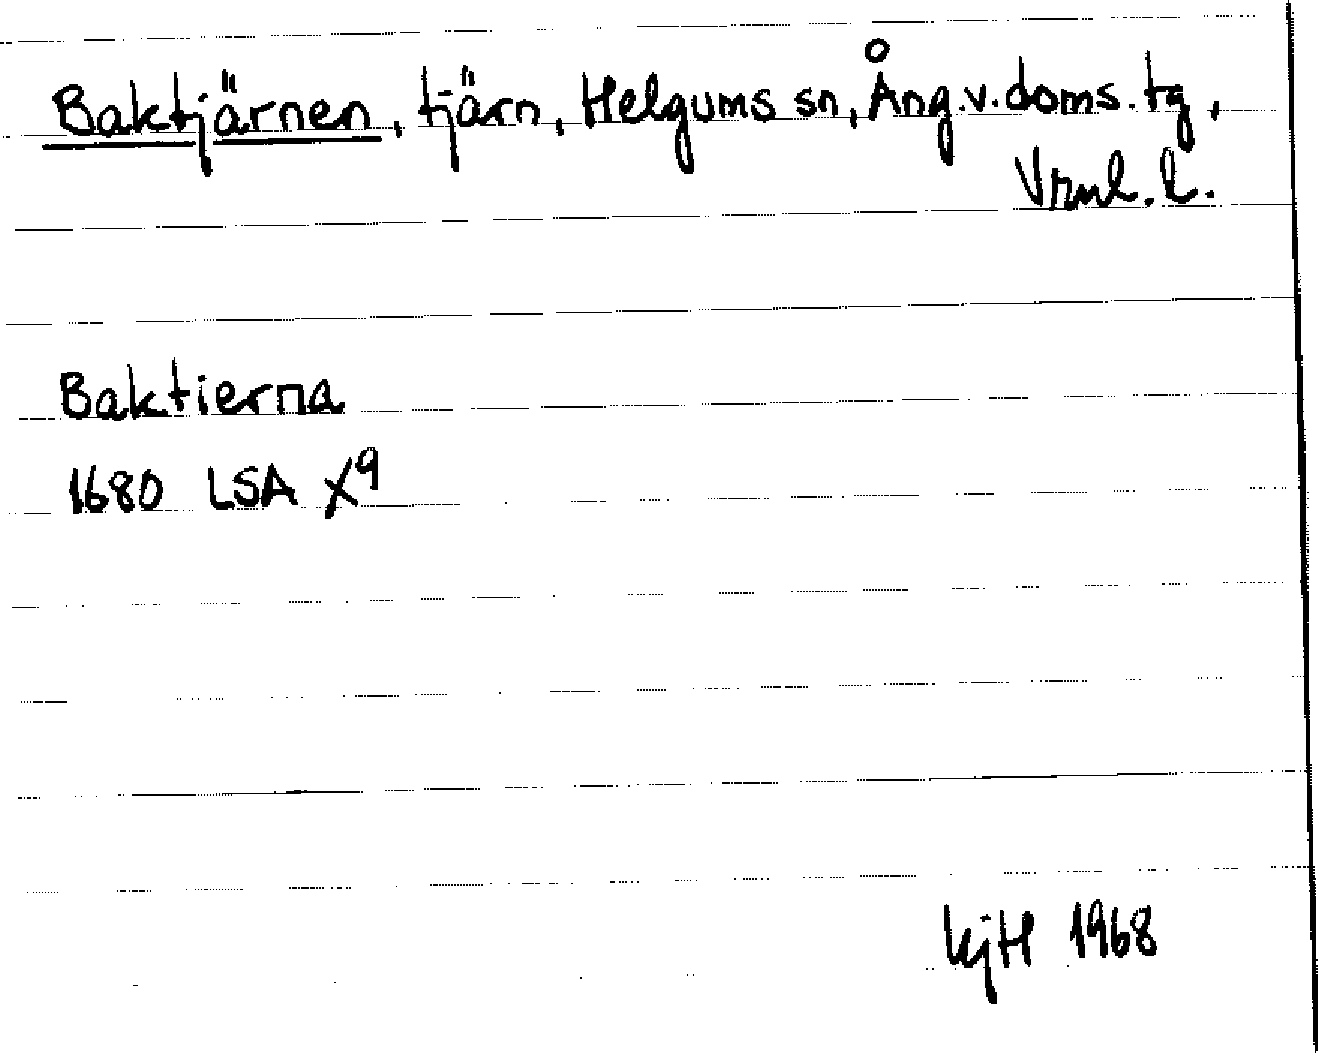 Baktjärnen, tjärn, Helgums sn, Ång.v.doms.tg,
Vrnl.l.
Baktierna
1680 LSA X⁹
KjH 1968